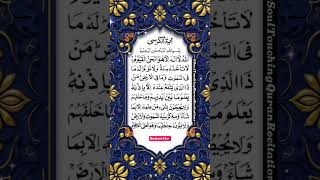 آية الكرسي
بِسْمِ اللّٰهِ الرَّحْمٰنِ الرَّحِيْمِ
اَللّٰهُ لَآ اِلٰهَ اِلَّا هُوَ الْحَيُّ الْقَيُّوْمُ
لَا تَاْخُذُهٗ سِنَةٌ وَّلَا نَوْمٌ لَهٗ مَا
فِي السَّمٰوٰتِ وَمَا فِي الْاَرْضِ مَنْ
ذَا الَّذِيْ يَشْفَعُ عِنْدَهٗٓ اِلَّا بِاِذْنِهٖ
يَعْلَمُ مَا بَيْنَ اَيْدِيْهِمْ وَمَا خَلْفَهُمْ
وَلَا يُحِيْطُوْنَ بِشَيْءٍ مِّنْ عِلْمِهٖٓ اِلَّا بِمَا
شَآءَ وَسِعَ كُرْسِيُّهُ السَّمٰوٰتِ وَالْاَرْضَ
وَلَا يَئُوْدُهٗ حِفْظُهُمَا وَهُوَ الْعَلِيُّ الْعَظِيْمُ
Subscribe
SoulTouchingQuranRecitation